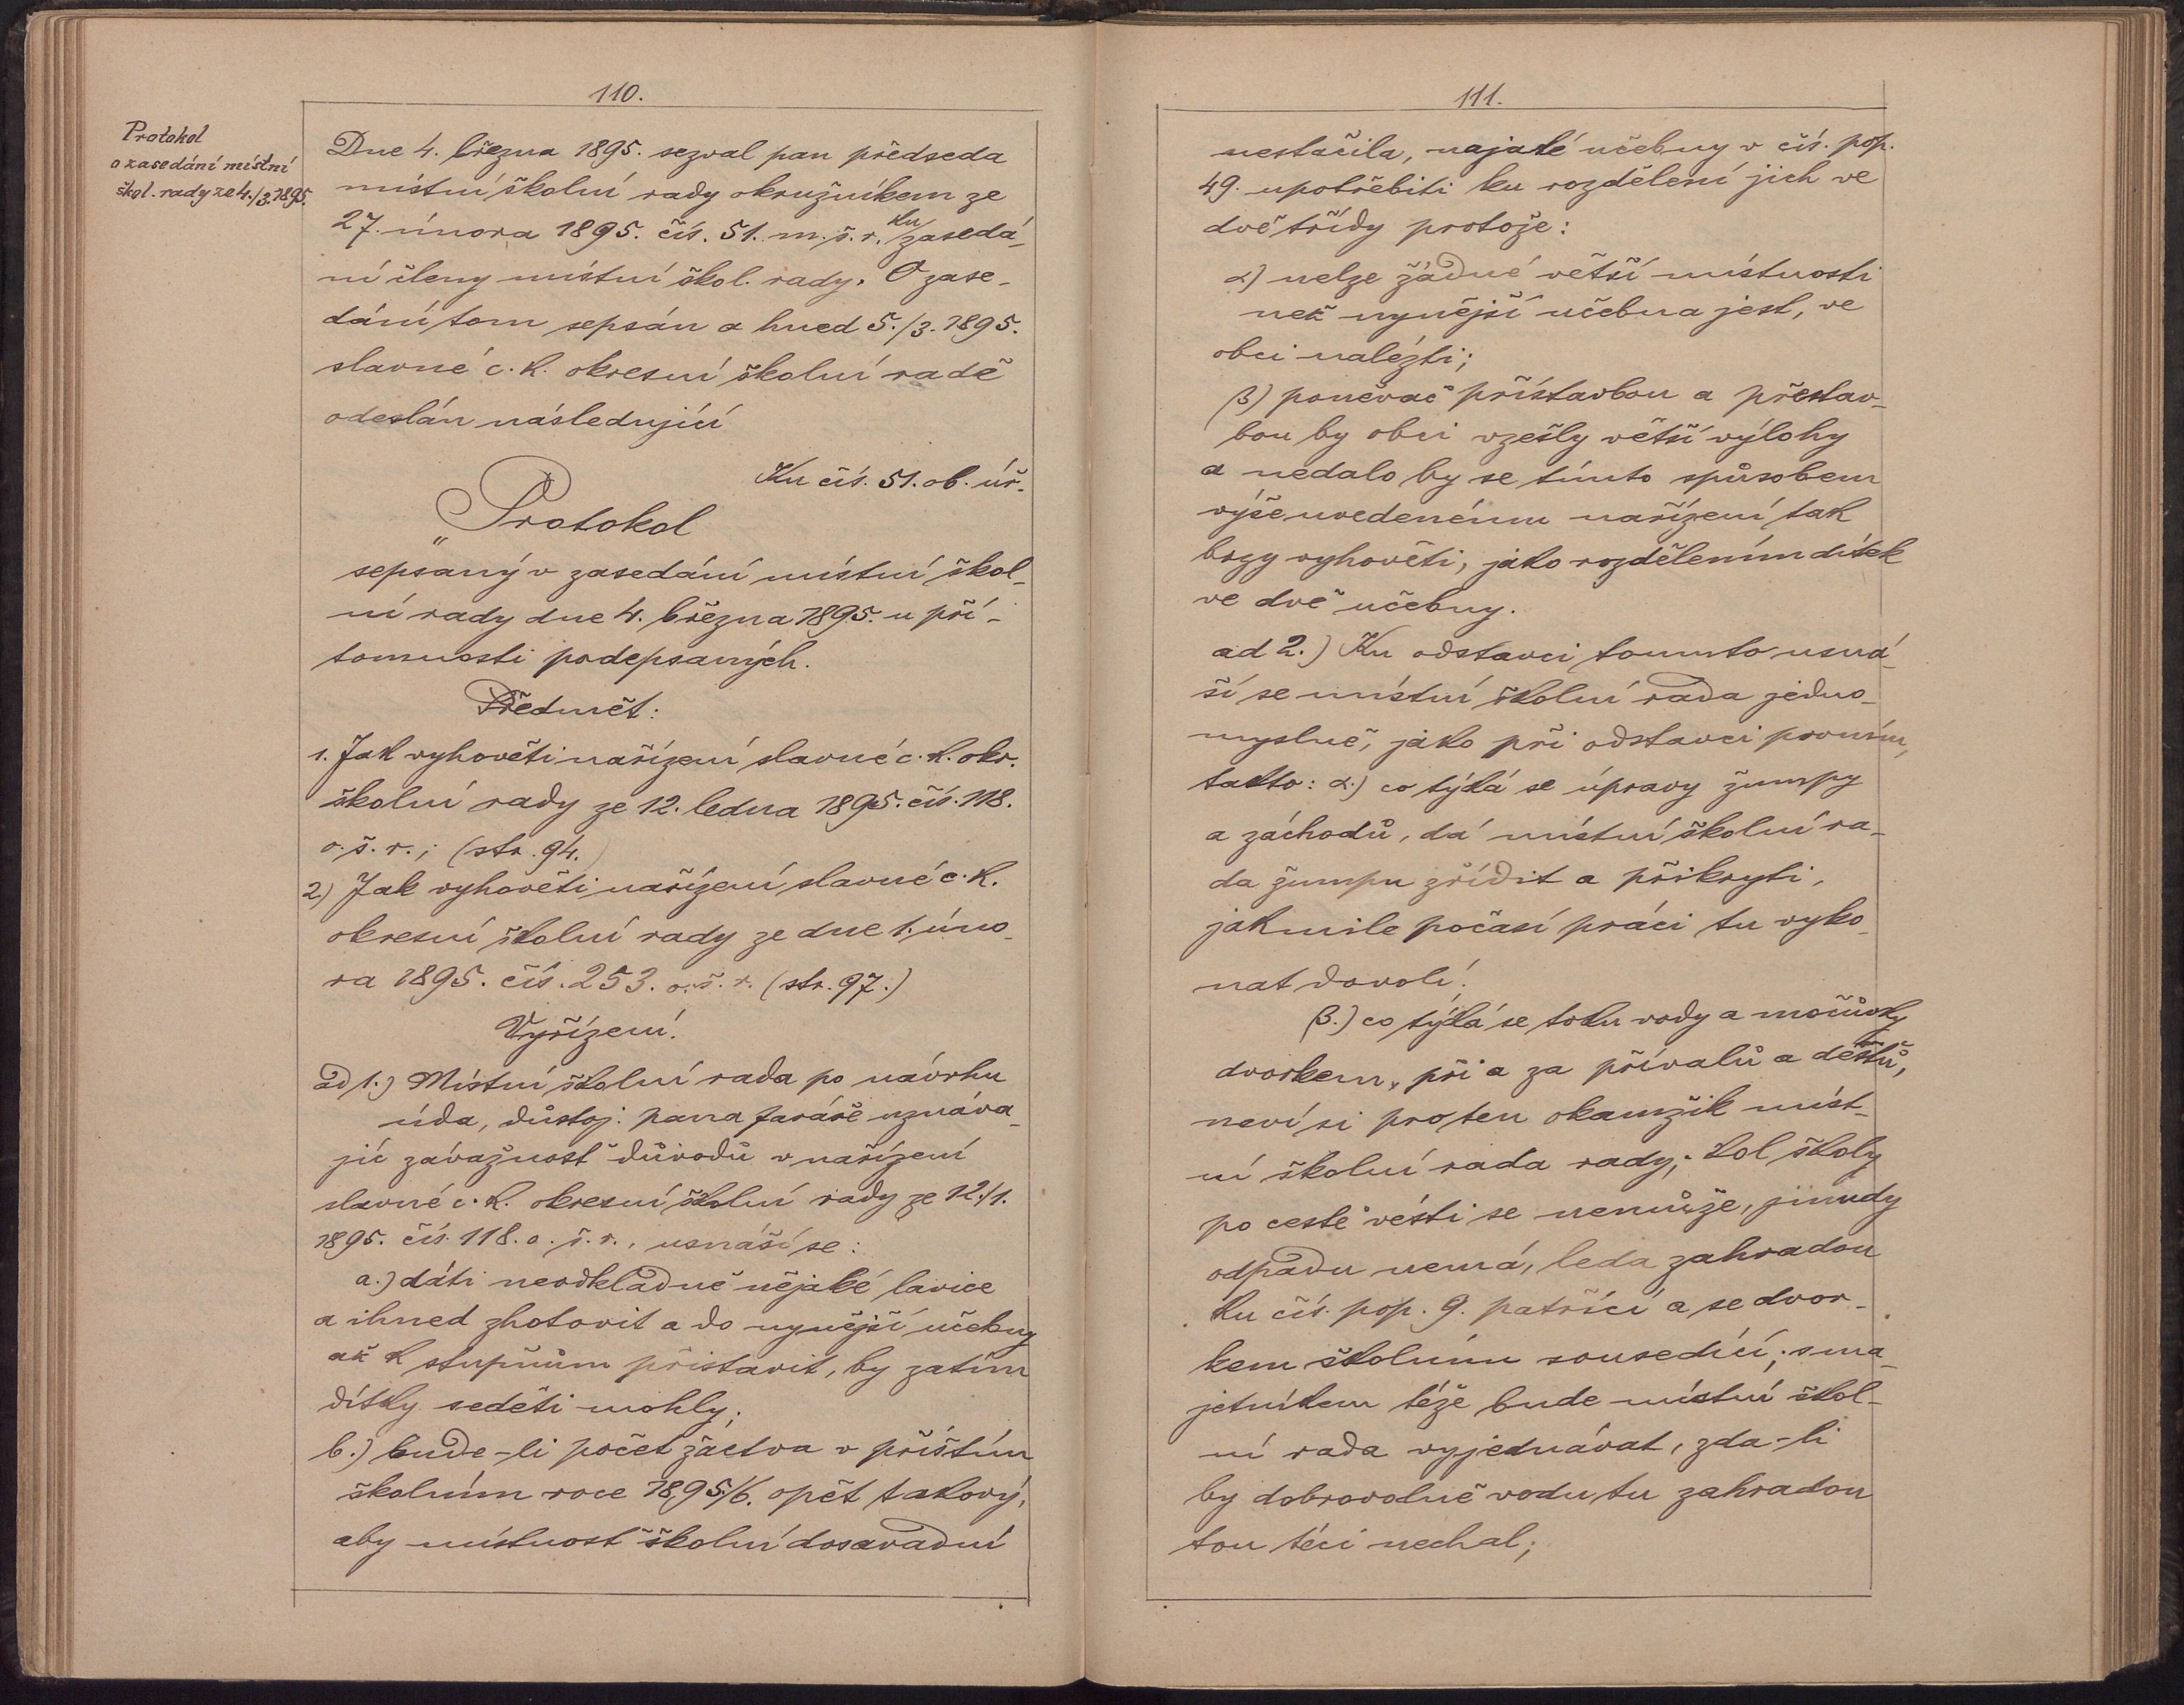 110.
Protokol
o zasedání místní
škol. rady ze 4./3. 1895.
Dne 4. března 1895. sezval pan předseda
místní školní rady okružníkem ze
27. února 1895. čís. 51. m. š. r. ku zasedá-
ní členy místní škol. rady. O zase-
dání tom sepsán a hned 5./3. 1895.
slavné c. k. okresní školní radě
odeslán následující
Ku čís. 51. ob. úř.
„Protokol
sepsaný v zasedání místní škol-
ní rady dne 4. března 1895. u pří-
tomnosti podepsaných.
Předmět:
1. Jak vyhověti nařízení slavné c. k. okr.
školní rady ze 12. ledna 1895. čís. 118.
o. š. r.; (str. 94.)
2.) Jak vyhověti nařízení slavné c. k.
okresní školní rady ze dne 1. úno-
ra 1895. čís. 253. o. š. r. (str. 97.)
Vyřízení.
ad 1.) Místní školní rada po návrhu
úda, důstoj. pana faráře uznáva-
jíc závažnost důvodů v nařízení
slavné c. k. okresní školní rady ze 12./1.
1895. čís. 118. o. š. r., usnáší se:
a.) dáti neodkladně nějaké lavice
a ihned zhotovit a do nynější učebny
až k stupňům přistavit, by zatím
dítky seděti mohly;
b.) bude-li počet žactva v příštím
školním roce 1895/6. opět takový,
aby místnost školní dosavadní
111.
nestačila, najaté učebny v čís. pop.
49. upotřebiti ku rozdělení jich ve
dvě třídy protože:
α) nelze žádné větší místnosti
než nynější učebna jest, ve
obci nalézti;
β) poněvač přístavbou a přestav-
bou by obci vzešly větší výlohy
a nedalo by se tímto spůsobem
výše uvedenému nařízení tak
brzy vyhověti, jako rozdělením dítek
ve dvě učebny.
ad 2.) Ku odstavci tomuto usná-
ší se místní školní rada jedno-
myslně, jako při odstavci prvním,
takto: α.) co týká se úpravy žumpy
a záchodů, dá místní školní ra-
da žumpu zřídit a přikryti,
jakmile počasí práci tu vyko-
nat dovolí;
β.) co týká se toku vody a močůvky
dvorkem, při a za přívalů a dešťů,
neví si pro ten okamžik míst-
ní školní rada rady; kol školy
po cestě vésti se nemůže, jinudy
odpadu nemá, leda zahradou
ku čís. pop. 9. patřící a se dvor-
kem školním sousedící; s ma-
jetníkem téže bude místní škol-
ní rada vyjednávat, zda-li
by dobrovolně vodu tu zahradou
tou téci nechal;